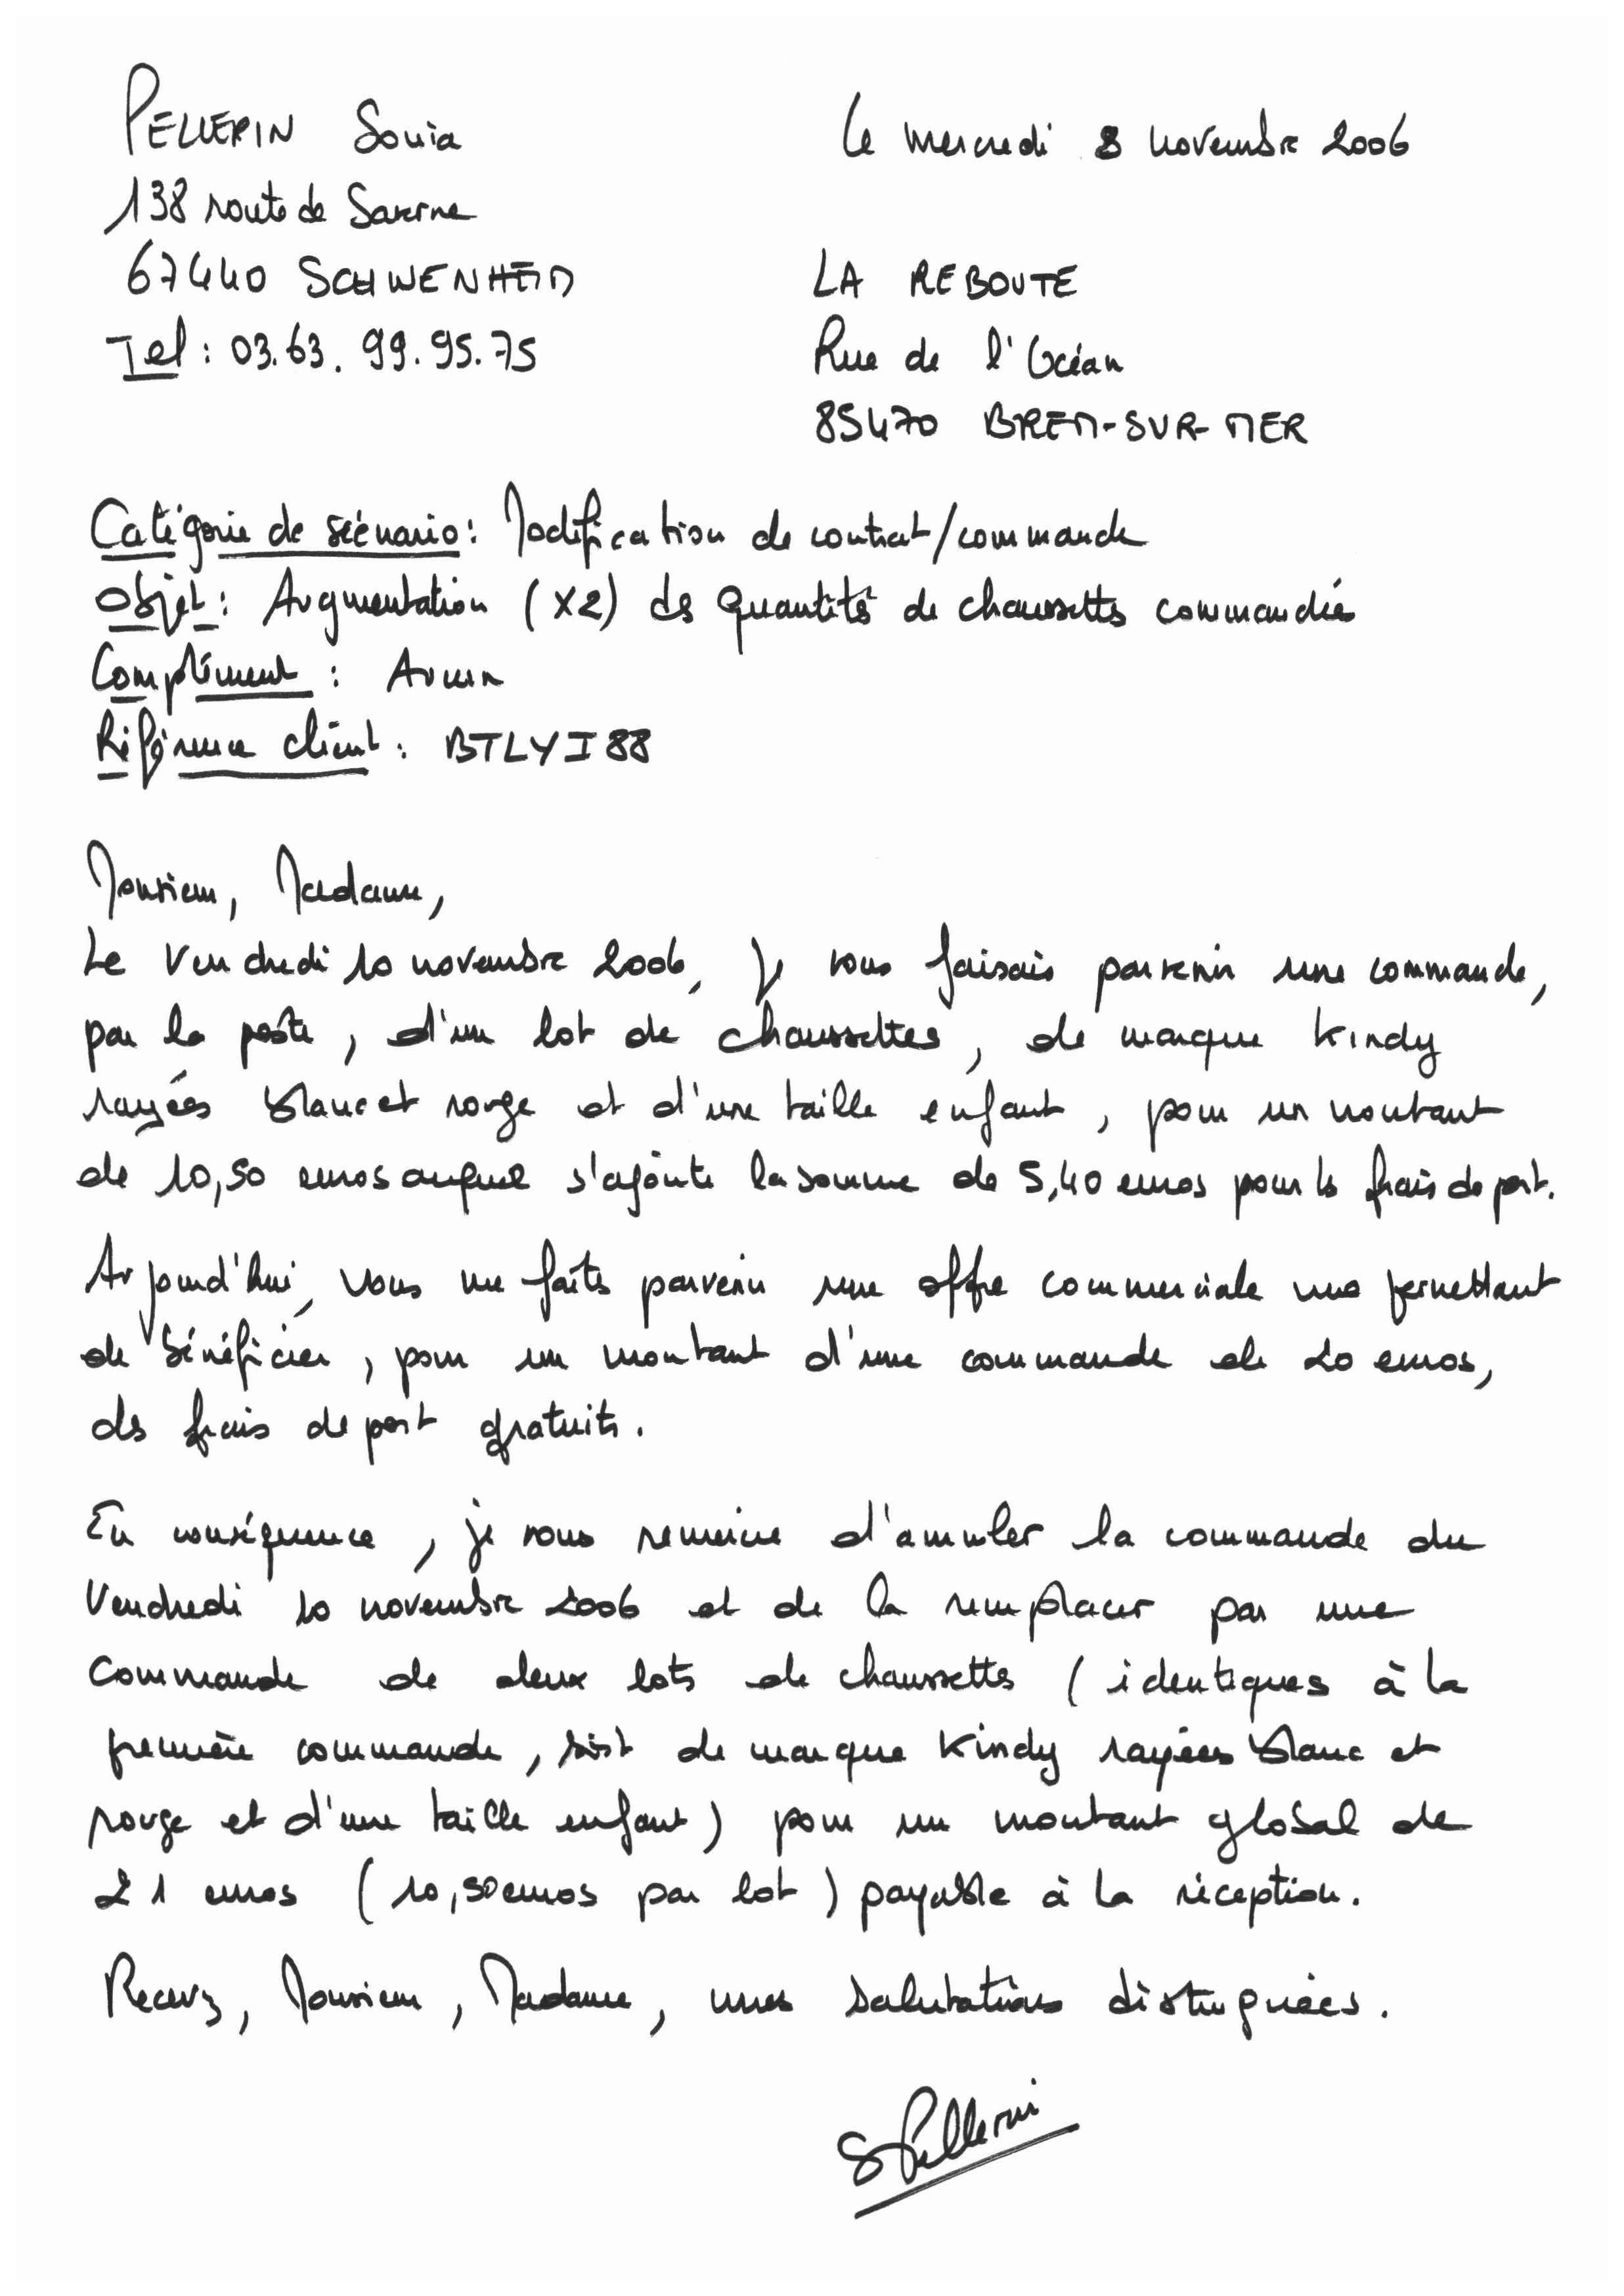 PELLERIN Sonia
Le mercredi 8 novembre 2006
138 route de Saverne
67440 SCHWENHEIM
Tel : 03.63.99.95.75
LA REBOUTE
Rue de l'Océan
85470 BREM-SUR-MER
Catégorie de scénario : Modification de contrat/commande
Objet : Augmentation (x2) des quantités de chaussettes commandées
Complément : Aucun
Référence client : BTLYI88
Monsieur, Madame,
Le Vendredi 10 novembre 2006, je vous faisais parvenir une commande,
par la poste, d'un lot de chaussettes, de marque Kindy
rayées blanc et rouge et d'une taille enfant, pour un montant
de 10,50 euros auquel s'ajoute la somme de 5,40 euros pour les frais de port.
Aujourd'hui, vous me faites parvenir une offre commerciale me permettant
de bénéficier, pour un montant d'une commande de 20 euros,
des frais de port gratuits.
En conséquence, je vous remercie d'annuler la commande du
Vendredi 10 novembre 2006 et de la remplacer par une
commande de deux lots de chaussettes (identiques à la
première commande, soit de marque Kindy rayées blanc et
rouge et d'une taille enfant) pour un montant global de
21 euros (10,50 euros par lot) payable à la réception.
Recevez, Monsieur, Madame, mes salutations distinguées.
S Pellerin